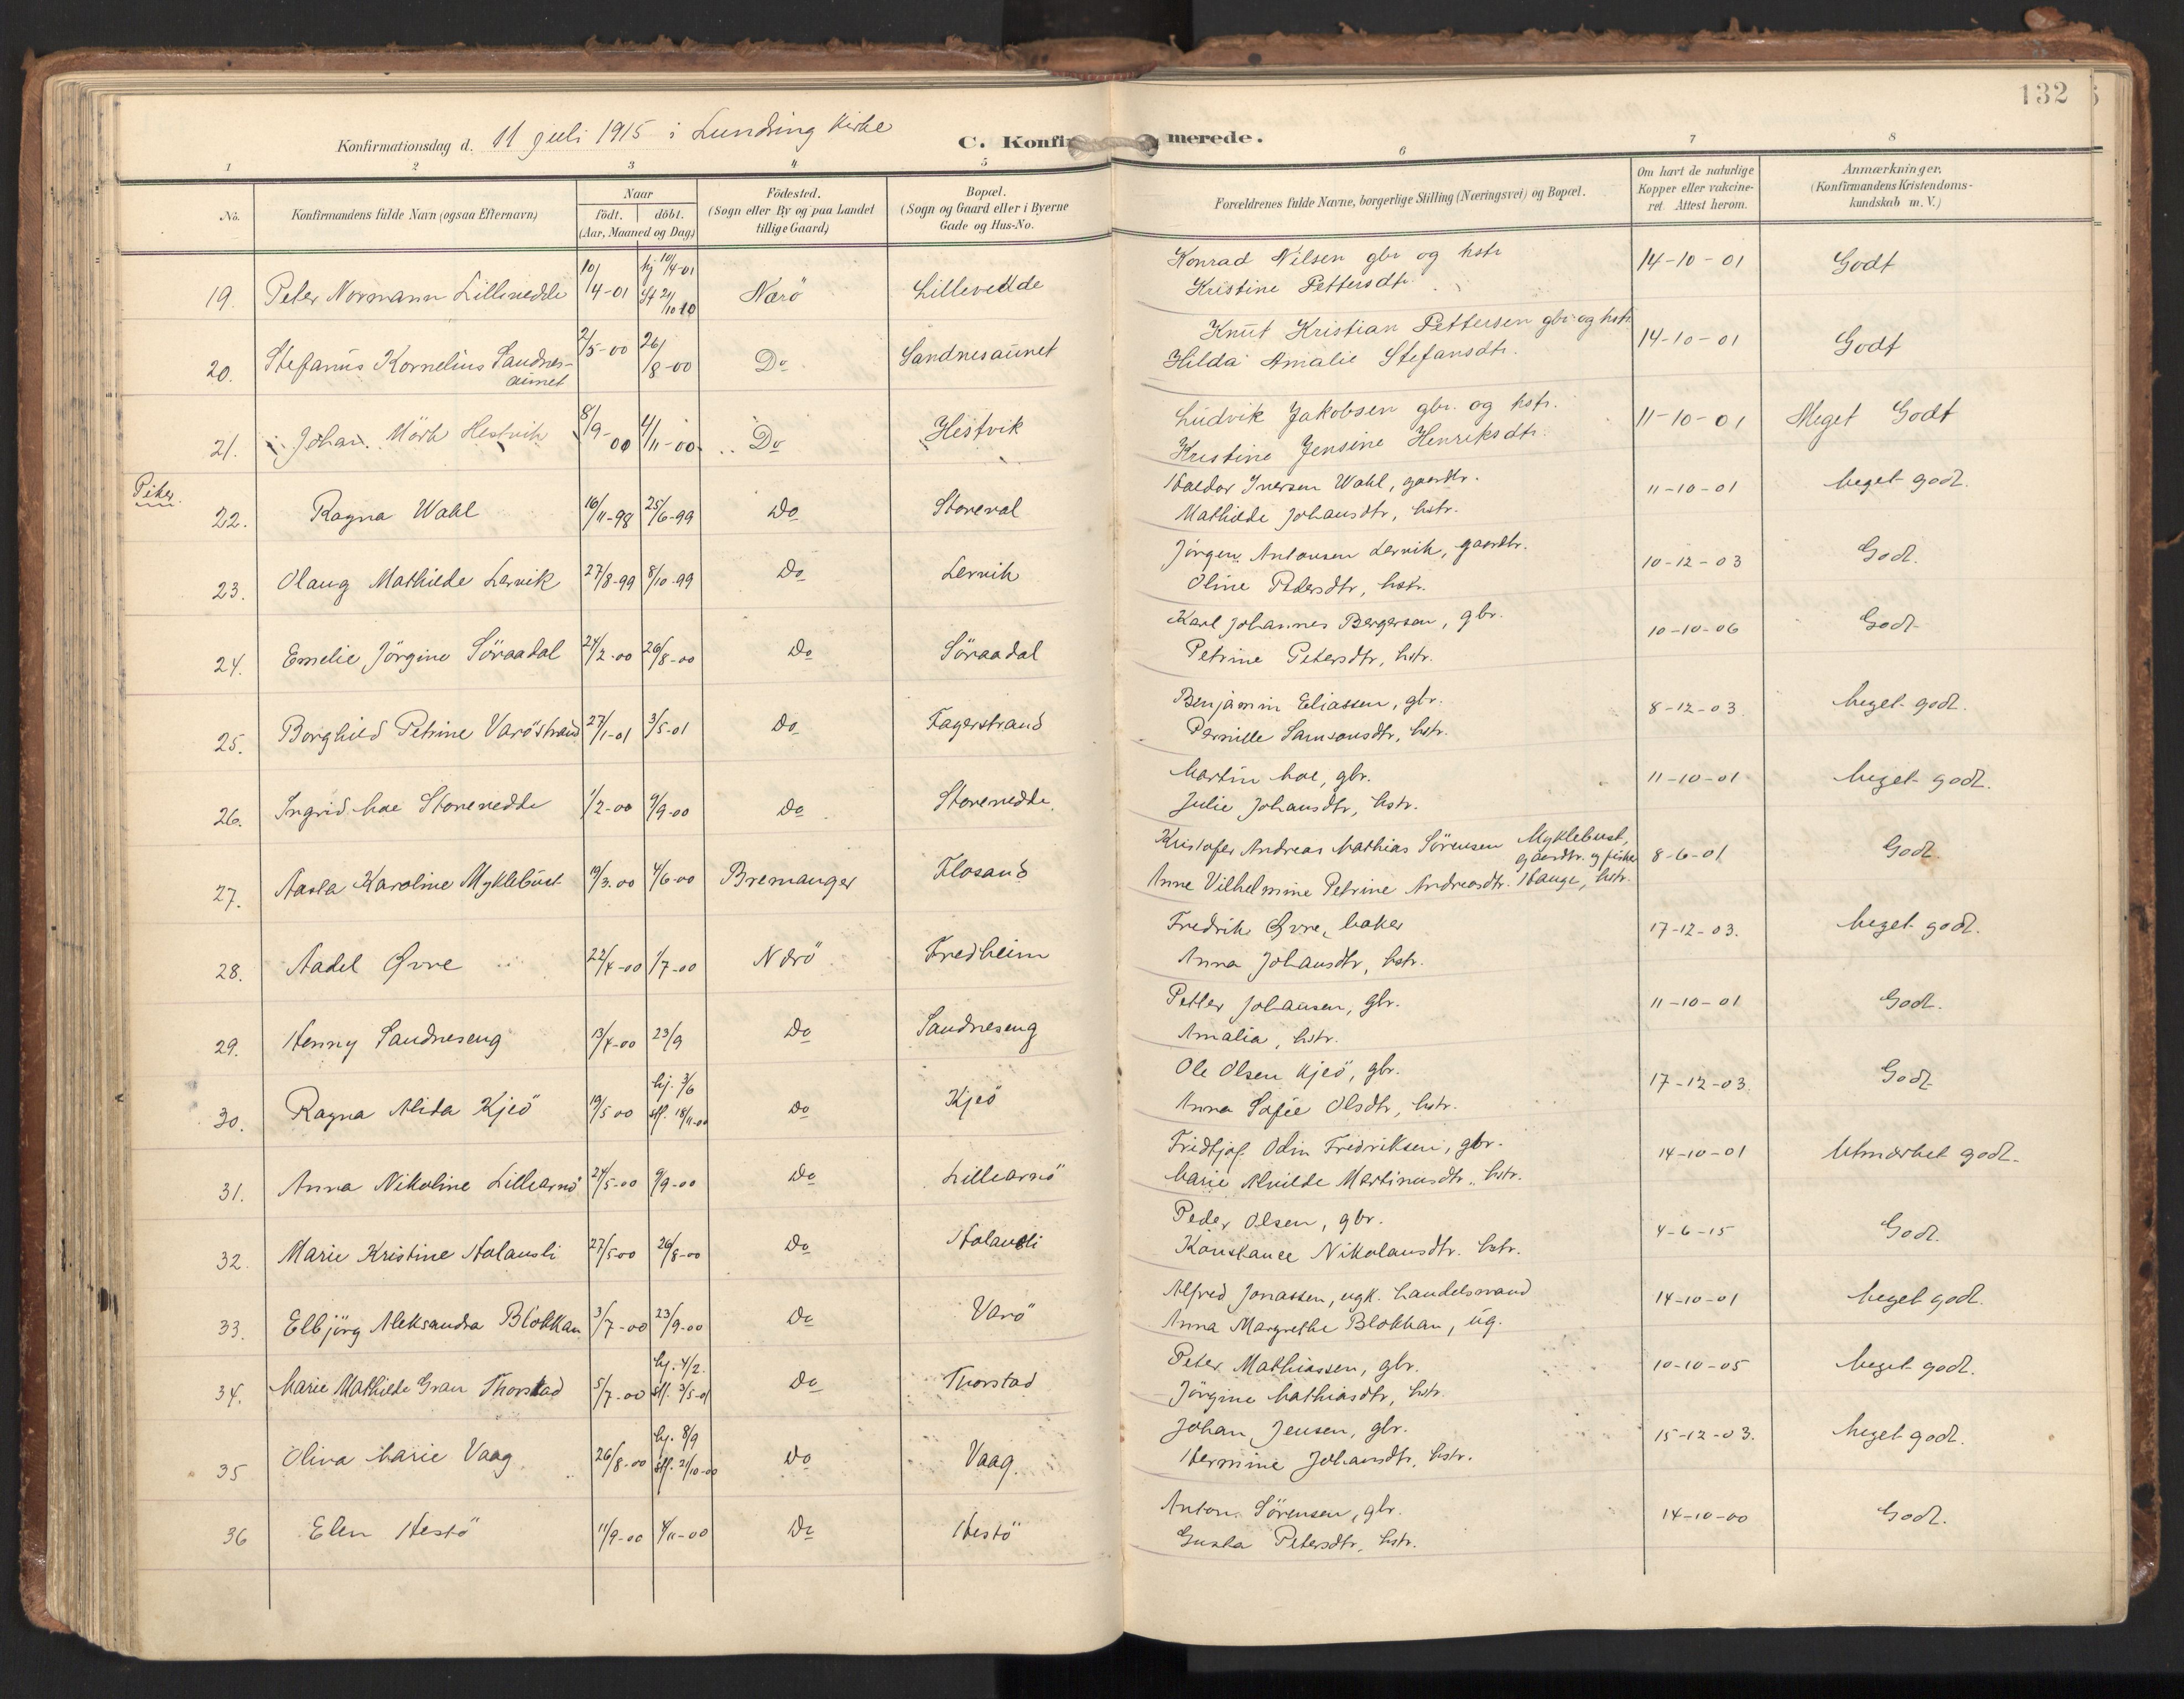 132
Konfirmationsdag d. 11 juli 1915 i Lundring kirke
C. Konfirmerede.
1 2 3 4 5 6 7 8
No.
Konfirmandens fulde Navn (ogsaa Efternavn)
Naar
födt. döbt.
(Aar, Maaned og Dag)
Födested.
(Sogn eller By og paa Landet
tillige Gaard)
Bopæl.
(Sogn og Gaard eller i Byerne
Gade og Hus-No.
Forældrenes fulde Navne, borgerlige Stilling (Næringsvei) og Bopæl.
Om havt de naturlige
Kopper eller vakcine-
ret. Attest herom.
Anmærkninger.
(Konfirmandens Kristendoms-
kundskab m. V.)
19. Peter Normann Lillevedde 10/4-01 hj 10/4-01 Nærö Lillevedde Konrad Nilsen gbr og hstr 14-10-01 Godt
Kristine Pettersdtr.
20. Stefanus Kornelius Sandnes- 2/5-00 26/8-00 Do Sandnesaunet Knut Kristian Pettersen gbr og hstr. 14-10-01 Godt
aunet Hilda Amalie Stefansdtr.
21. Johan Mörk Hestvik 8/9-00 4/11-00 Do Hestvik Ludvik Jakobsen gbr. og hstr. 11-10-01 Meget Godt
Kristine Jensine Henriksdtr.
Piker
22. Ragna Wahl 16/11-98 25/6-99 Do Storeval Haldor Iversen Wahl, gaardbr. 11-10-01 Meget godt.
Mathilde Johansdtr, hstr.
23. Olaug Mathilde Lervik 27/8-99 8/10-99 Do Lervik Jörgen Antonsen Lervik, gaardbr. 10-12-03 Godt.
Oline Pedersdtr, hstr.
24. Emelie Jörgine Söraadal 24/2-00 26/8-00 Do Söraadal Karl Johannes Bergersen, gbr. 10-10-06 Godt
Petrine Petersdtr, hstr.
25. Borghild Petrine Varöstrand 27/1-01 3/5-01 Do Fagerstrand Benjamin Eliassen, gbr. 8-12-03. Meget godt.
Pernille Samsonsdtr, hstr.
26. Ingrid Moe Storevedde 1/2-00 9/9-00 Do Storevedde. Martin Moe, gbr. 11-10-01 Meget godt.
Julie Johansdtr, hstr.
27. Aasta Karoline Myklebust 19/3.00 4/6-00 Bremanger Flosand Kristofer Andreas Mathias Sörensen Myklebust, 8-6-01 Godt.
gaardbr. og fisker
Anne Vilhelmine Petrine Andreasdtr. Hauge, hstr.
28. Aadel Øvre 22/4-00 1/7-00 Nærö Fredheim Fredrik Øvre, baker 17-12-03. Meget godt.
Anna Johansdtr, hstr.
29. Henny Sandneseng 13/4-00 23/9 Do Sandneseng Petter Johansen, gbr. 11-10-01 Godt.
Amalia, hstr.
30. Ragna Alida Kjeö 19/5 00 hj. 3/6 stf. 18/11-00 Do Kjeö Ole Olsen Kjeö, gbr. 17-12-03. Godt
Anna Sofie Olsdtr, hstr.
31. Anna Nikoline Lillearnö 24/5-00 9/9-00 Do Lillearnö Fridtjof Odin Fredriksen, gbr. 14-10-01 Utmærket godt.
Marie Alvilde Martinusdtr. hstr.
32. Marie Kristine Holandsli 27/5 00 26/8-00 Do Holandsli Peder Olsen, gbr. 4-6-15 Godt.
Konstance Nikolausdtr. hstr.
33. Elbjörg Aleksandra Blokhau 3/7-00 23/9-00 Do Varö Alfred Jonassen, ugk. handelsmand 14-10-01 Meget godt.
Anna Margrethe Blokhau, ug.
34. Marie Mathilde Gran Thorstad 5/7-00 hj. 4/2. stf. 3/5-01 Do Thorstad Peter Mathiassen, gbr. 10-10-05 Meget godt.
Jörgine Mathiasdtr, hstr.
35 Oliva Marie Vaag 26/8-00 hj. 8/9 stf. 21/10-00 Do Vaag. Johan Jensen, gbr. 15-12-03. Meget godt.
Hermine Johansdtr, hstr.
36 Elen Hestö 11/9-00 4/11-00 Do Hestö Anton Sörensen, gbr. 14-10-00 Godt.
Gusta Petersdtr, hstr.